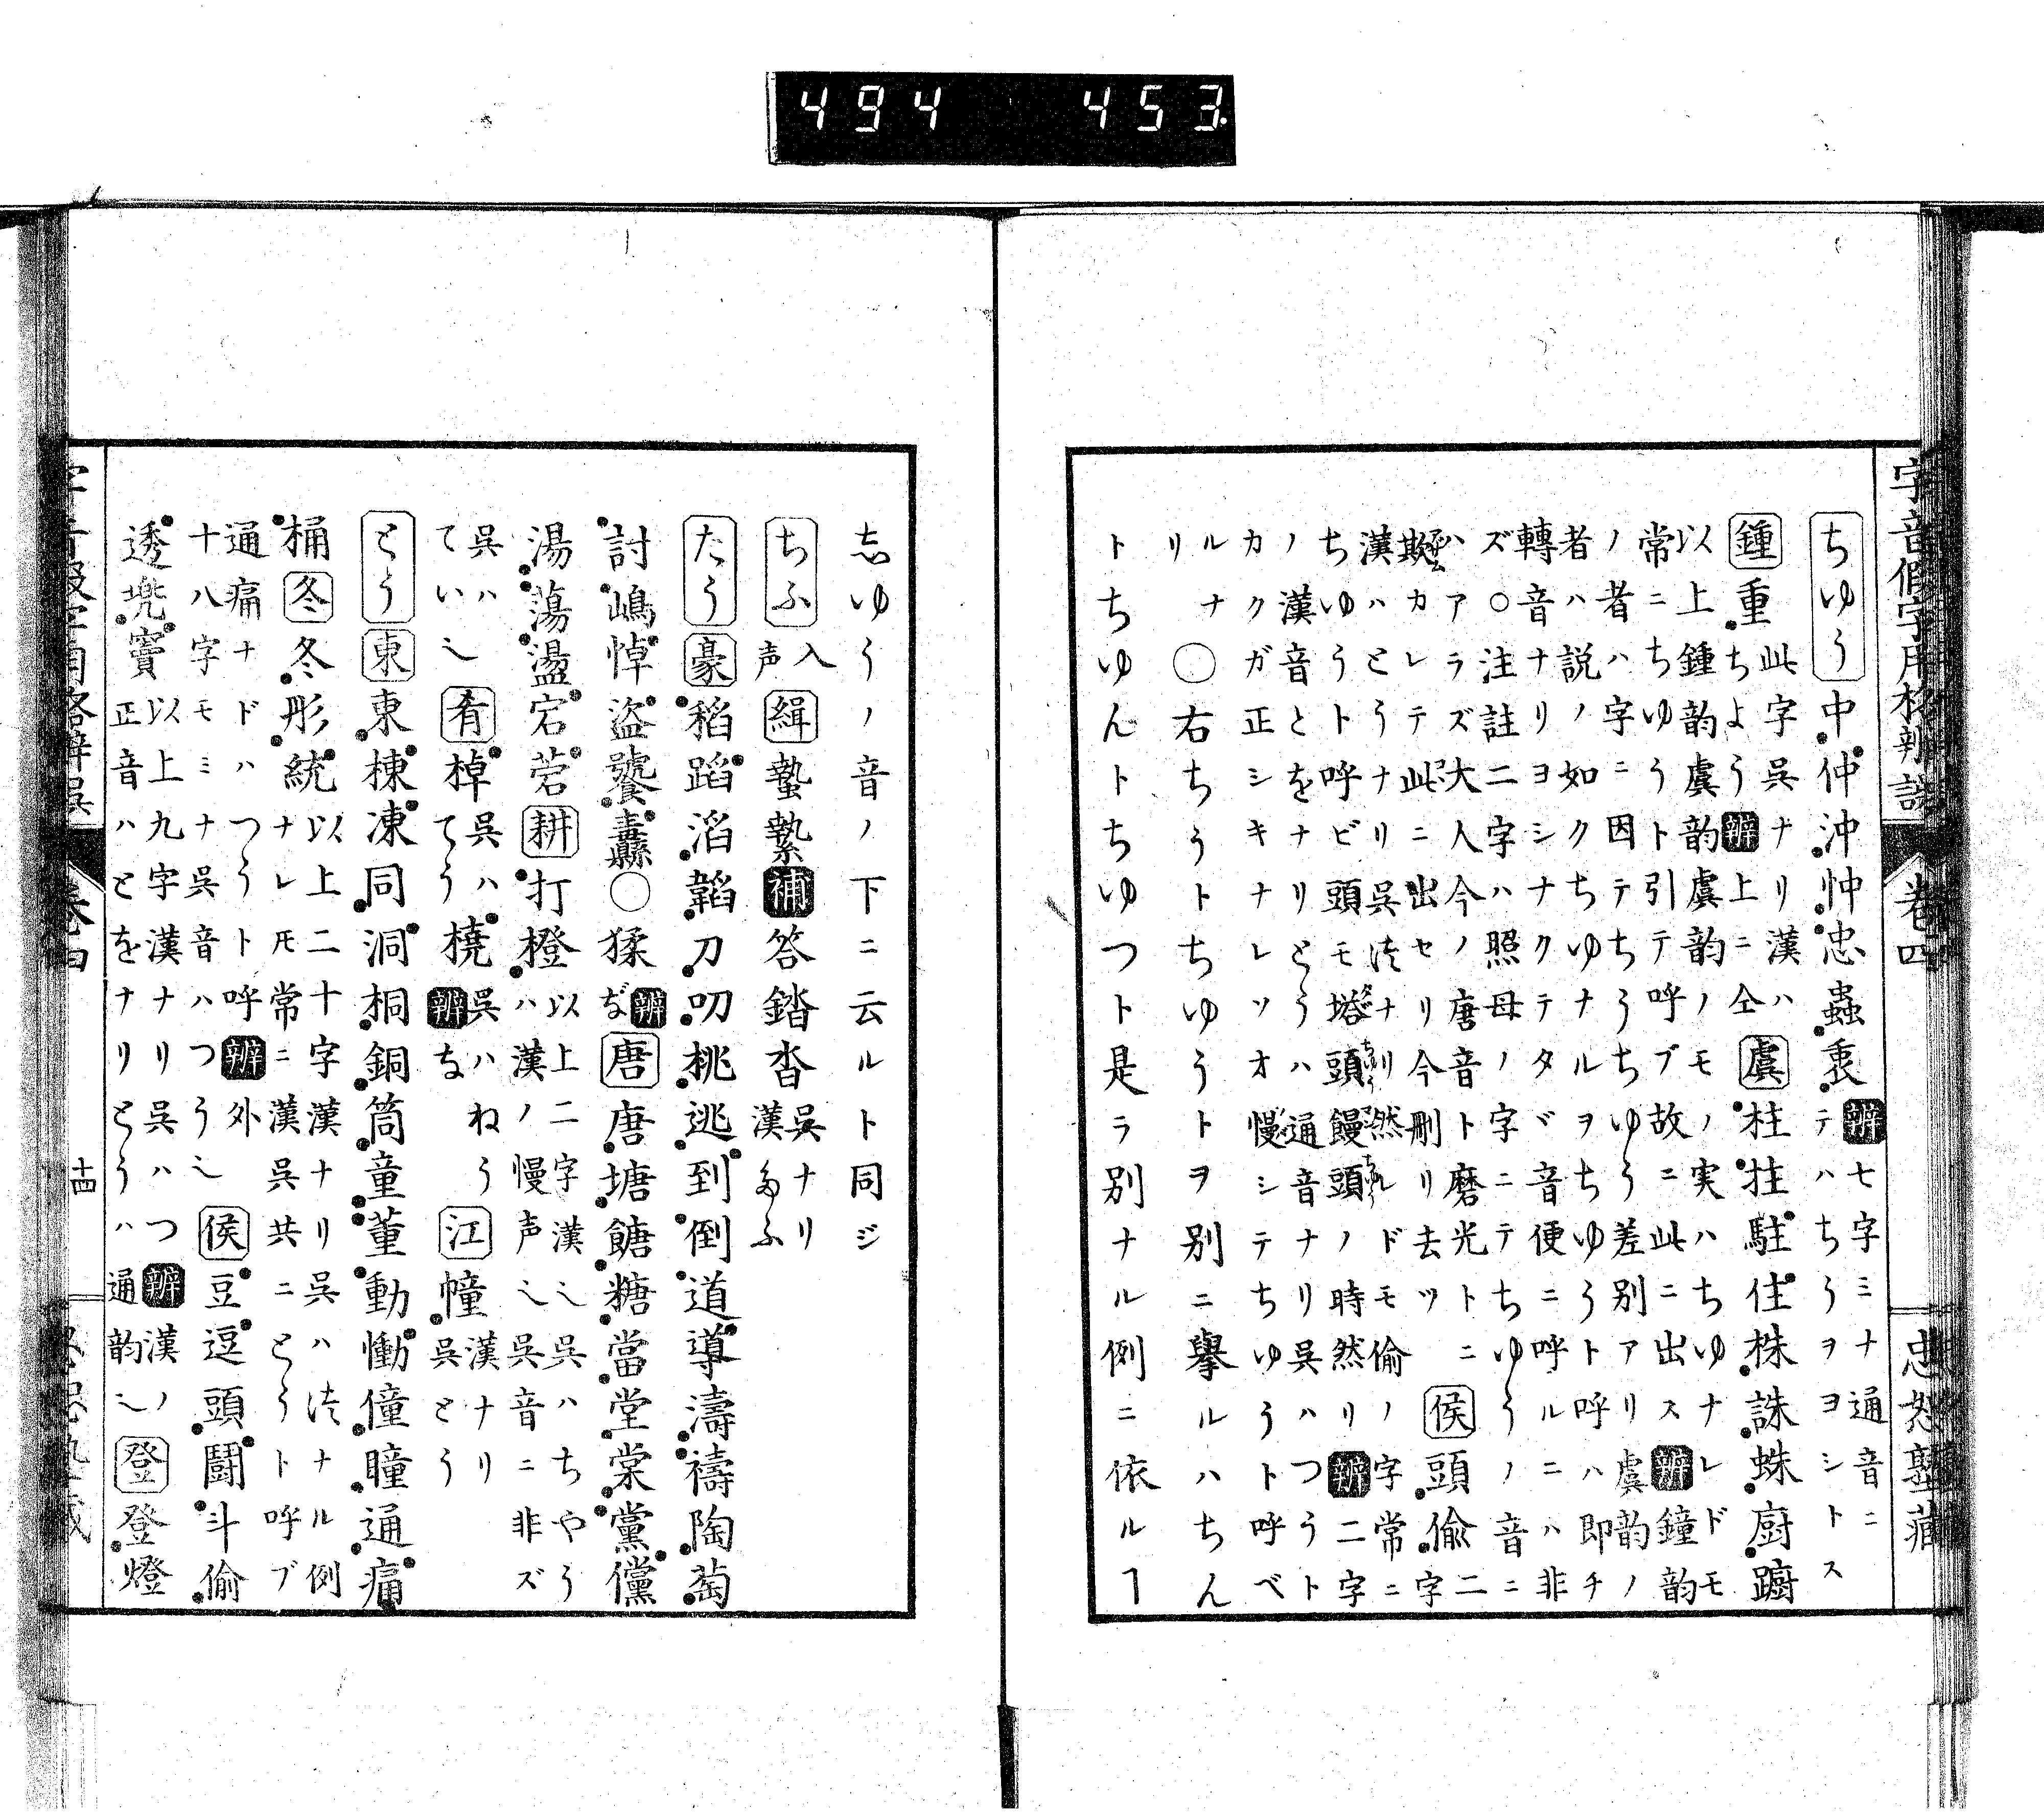 494 453
字音假字用格辨誤 卷四 忠恕塾藏
ちゆう 中仲沖忡忠蟲衷 辨七字ミナ通音ニテハちうヲヨシトス
鍾 重 此字呉ナリ漢ハちよう 辨上ニ仝 虞 柱拄駐住株誅蛛廚躕
以上鍾韵虞韵虞韵ノモノ実ハちゆナレドモ
常ニちゆうト引テ呼ブ故ニ此ニ出ス 辨鐘韵
ノ者ハ字ニ因テちうちゆう差別アリ虞韵ノ
者ハ説ノ如クちゆナルヲちゆうト呼ハ即チ
轉音ナリヨシナクテタヾ音便ニ呼ルニハ非
ズ○注註二字ハ照母ノ字ニテちゆうノ音ニ
ハアラズ大人今ノ唐音ト磨光トニ
欺カレテ此ニ出セリ今刪リ去ツ 侯 頭偸 二字
漢ハとうナリ呉ハ法ナリ然レドモ偸ノ字常ニ
ちゆうト呼ビ頭モ塔頭饅頭ノ時然リ 辨二字
ノ漢音とをナリとうハ通音ナリ呉ハつうト
カクガ正シキナレツオ慢シテちゆうト呼ベ
ルナリ ○右ちうトちゆうトヲ別ニ擧ルハちん
トちゆんトちゆつト是ラ別ナル例ニ依ルヿ
志ゆうノ音ノ下ニ云ルト同ジ
ちふ 入声 緝 蟄縶 補 答踏沓 呉ナリ漢たふ
たう 豪 稻蹈滔韜刀叨桃逃到倒道導濤禱陶萄
討嶋悼盜饕纛○猱 辨ぢ 唐 唐塘餹糖當堂棠黨儻
湯蕩盪宕菪 耕 打橙 以上二字漢也呉ハちやうハ漢ノ慢声也呉音ニ非ズ
呉ハてい也 肴 棹 呉ハてう 橈 呉ハねう 辨な 江 幢 漢ナリ呉とう
とう 東 東棟凍同洞桐銅筒童董動慟僮瞳通痛
桶 冬 冬彤統 以上二十字漢ナリ呉ハ法ナル例ナレ𪜈常ニ漢呉共ニとうト呼ブ
通痛ナドハつうト呼 辨外十八字モミナ呉音ハつう也 侯 豆逗頭鬪斗偸
透兜竇 以上九字漢ナリ呉ハつ 辨漢ノ正音ハとをナリとうハ通韵也 登 登燈
十四